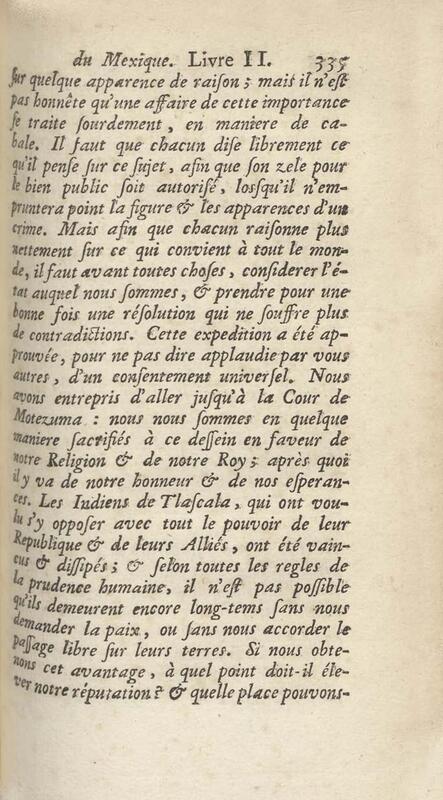 du Mexique. Livre II. 335
ſur quelque apparence de raiſon ; mais il n'eſt
pas honnête qu'une affaire de cette importance
ſe traite ſourdement, en maniere de ca-
bale. Il faut que chacun diſe librement ce
qu'il penſe ſur ce ſujet, afin que ſon zele pour
le bien public ſoit autoriſé, loſſqu'il n'em-
pruntera point la figure & les apparences d'un
crime. Mais afin que chacun raiſonne plus
nettement ſur ce qui convient à tout le mon-
de, il faut avant toutes choſes, conſiderer l'é-
tat auquel nous ſommes, & prendre pour une
bonne fois une réſolution qui ne ſouffre plus
de contradictions. Cette expedition a été ap-
prouvée, pour ne pas dire applaudie par vous
autres, d'un conſentement univerſel. Nous
avons entrepris d'aller juſqu'à la Cour de
Motezuma : nous nous ſommes en quelque
maniere ſacrifiés à ce deſſein en faveur de
notre Religion & de notre Roy ; après quoi
il y va de notre honneur & de nos eſperan-
ces. Les Indiens de Tlaſcala, qui ont vou-
lu s'y oppoſer avec tout le pouvoir de leur
Republique & de leurs Alliés, ont été vain-
cus & diſſipés ; & ſelon toutes les regles de
la prudence humaine, il n'eſt pas poſſible
qu'ils demeurent encore long-tems ſans nous
demander la paix, ou ſans nous accorder le
paſſage libre ſur leurs terres. Si nous obte-
nons cet avantage, à quel point doit-il éle-
ver notre réputation ? & quelle place pouvons-